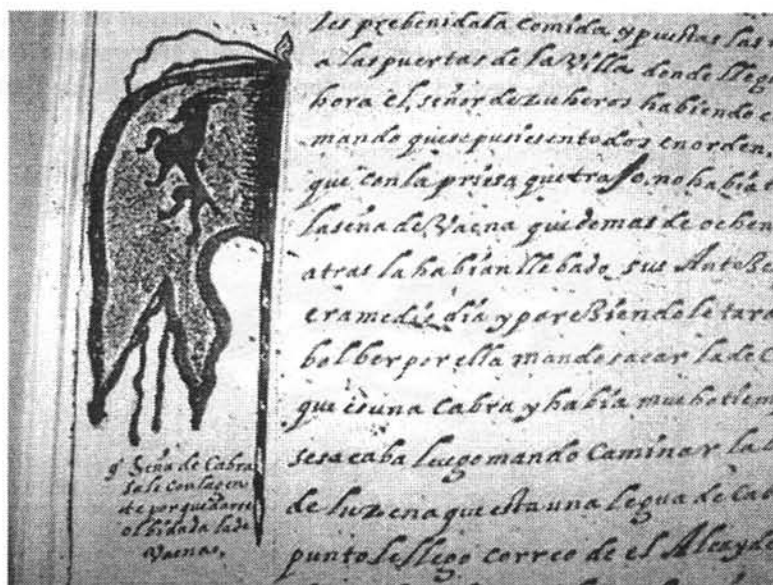 les prebenida la Comida y puestas las
a las puertas de la Villa donde llego
hora el, señor de zuheros habiendo
mando que se pusiesen todos en orden,
que con la priesa que trajo, no había
la seña de Vaena que demas de ochen
atras la habían llebado, sus Ante
era medio día y pareziendole tar
bolber por ella mando sacar la de C
que es una Cabra y había mucho tiem
se sacaba luego mando Caminar la
de luzena que esta una legua de Ca
punto le llego correo de el Alcayde
Seña de Cabra
sale con la gen
te por quedarse
olbidada la de
Vaena.